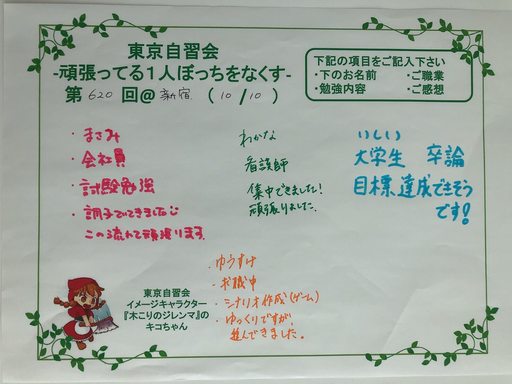 東京自習会
-頑張ってる１人ぼっちをなくす-
第 620 回@ 新宿 （ 10 / 10 ）
下記の項目をご記入下さい
・下のお名前 ・ご職業
・勉強内容 ・ご感想
・まさみ
・会社員
・試験勉強
・調子でてきました
この流れで頑張ります。
わかな
看護師
集中できました！
頑張りました。
いしい
大学生 卒論
目標達成できそう
です！
・ゆうすけ
・求職中
・シナリオ作成（ゲーム）
・ゆっくりですが、
進んできました。
東京自習会
イメージキャラクター
『木こりのジレンマ』の
キコちゃん